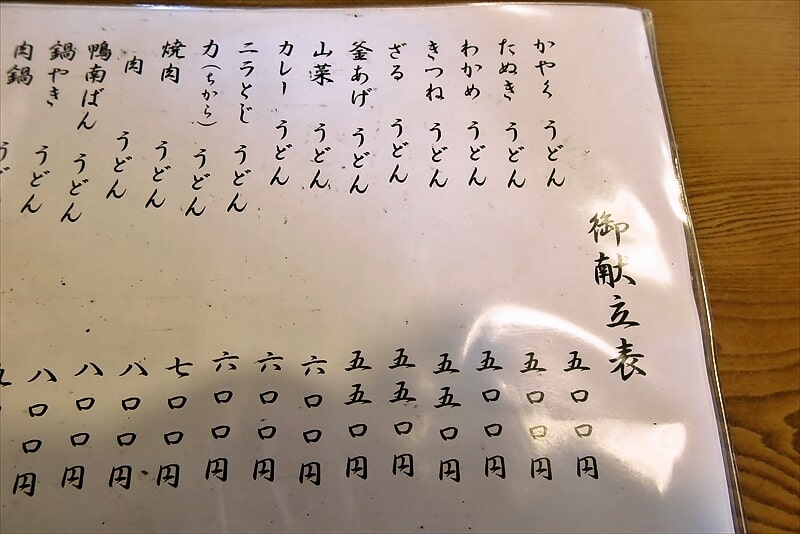 御献立表
かやくうどん 五〇〇円
たぬきうどん 五〇〇円
わかめうどん 五〇〇円
きつねうどん 五五〇円
ざるうどん 五五〇円
釜あげうどん 五五〇円
山菜うどん 六〇〇円
カレーうどん 六〇〇円
ニラとじうどん 六〇〇円
力(ちから)うどん 七〇〇円
焼肉うどん 八〇〇円
肉うどん 八〇〇円
鴨南ばんうどん 八〇〇円
鍋やきうどん
肉鍋